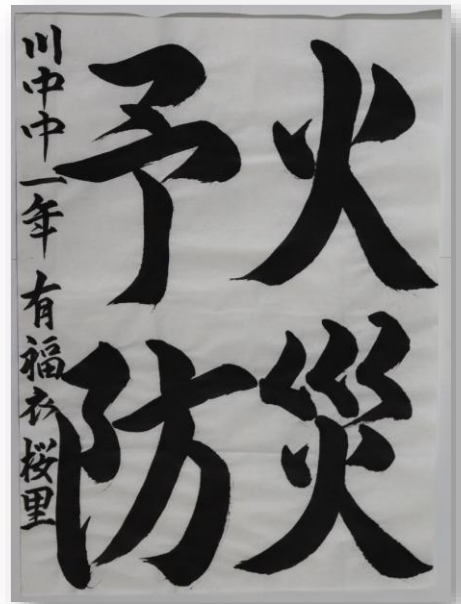 火災
予防
川中中一年 有福衣桜里